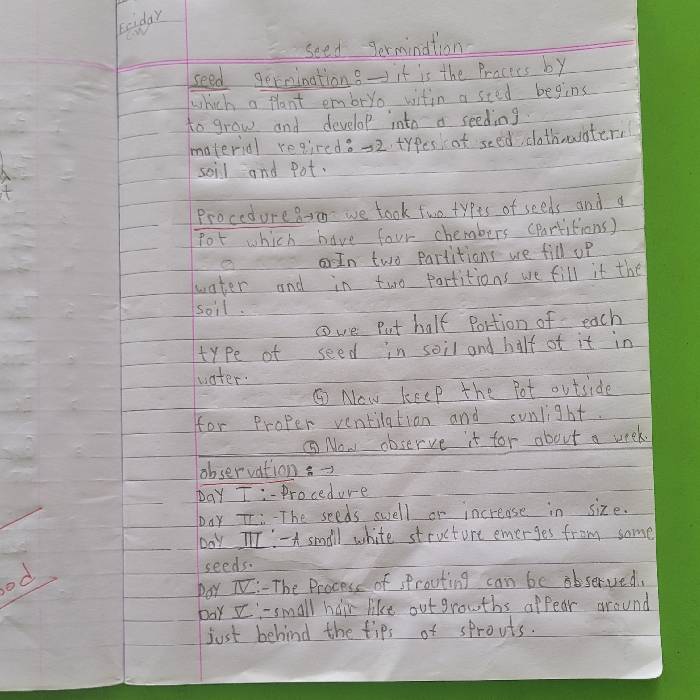 Friday
CW
seed germination
seed germination:→ it is the Process by
which a Plant embryo witin a seed begins
to grow and develop into a seeding.
material reqired:→2 types of seed, cloth, water,
soil and Pot.
Procedure:→① we took two types of seeds and a
Pot which have four chembers (Partitions)
② In two Partitions we fill up
water and in two Partitions we fill it the
soil.
③ we Put half Portion of each
type of seed in soil and half of it in
water.
④ Now keep the Pot outside
for Proper ventilation and sunlight.
⑤ Now observe it for about a week.
observation:→
Day I:-Procedure
Day II:-The seeds swell or increase in size.
Day III:-A small white structure emerges from some
seeds.
Day IV:-The Process of sprouting can be observed.
Day V:-small hair like outgrowths appear around
just behind the tips of sprouts.